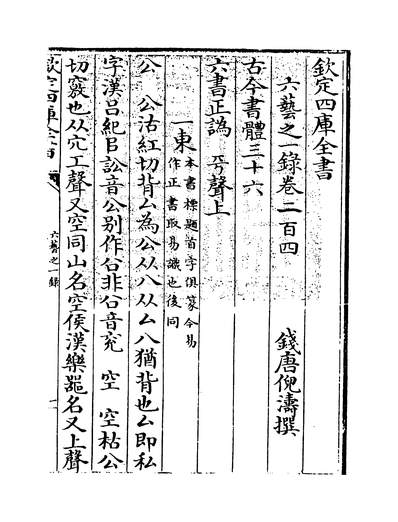 欽定四庫全書
六藝之一録卷二百四
錢唐倪濤撰
古今書體三十六
六書正譌 平聲上
一東本書標題首字俱篆今易作正書取易識也後同
公 公沽紅切背厶為公从八从厶八猶背也厶即私
字漢吕紀㠯訟音公别作㕣非㕣音兖 空 空枯公
切竅也从穴工聲又空同山名空侯漢樂器名又上聲
欽定四庫全書
六藝之一録
一